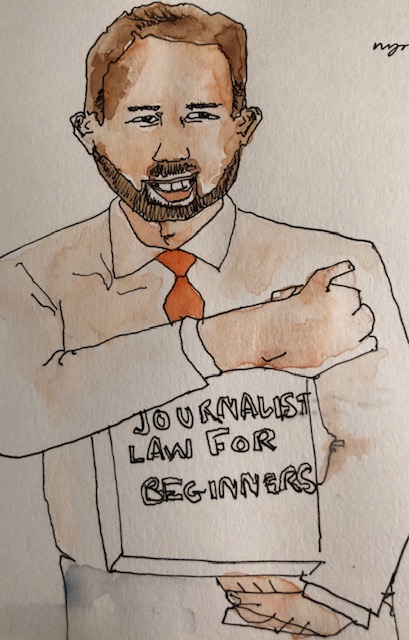 JOURNALIST
LAW FOR
BEGINNERS